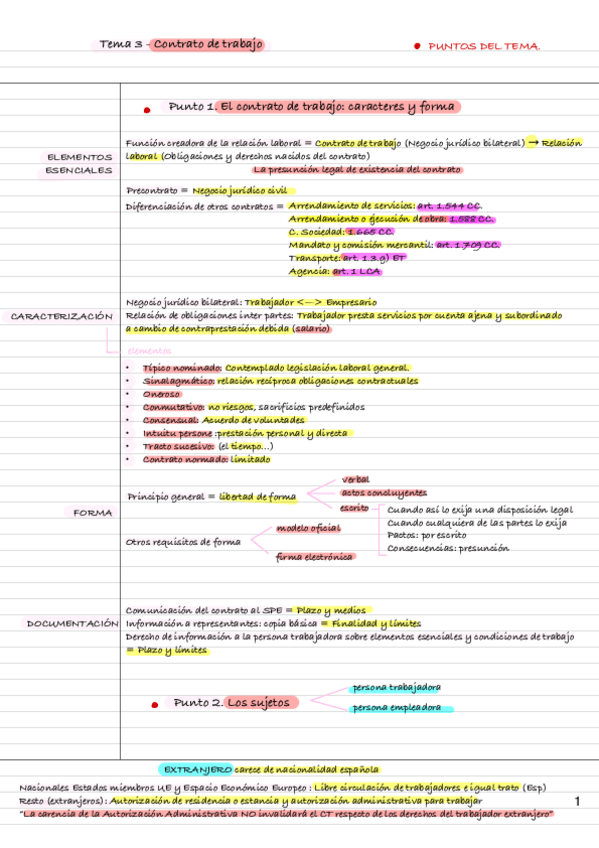 Tema 3 - Contrato de trabajo
PUNTOS DEL TEMA.
Punto 1. El contrato de trabajo: caracteres y forma
ELEMENTOS
ESENCIALES
Función creadora de la relación laboral = Contrato de trabajo (Negocio jurídico bilateral) → Relación
laboral (Obligaciones y derechos nacidos del contrato)
La presunción legal de existencia del contrato
Precontrato = Negocio jurídico civil
Diferenciación de otros contratos = Arrendamiento de servicios: art. 1.544 CC.
Arrendamiento o ejecución de obra: 1.588 CC.
C. Sociedad: 1.665 CC.
Mandato y comisión mercantil: art. 1.709 CC.
Transporte: art. 1.3 g) ET
Agencia: art. 1 LCA
CARACTERIZACIÓN
Negocio jurídico bilateral: Trabajador <--> Empresario
Relación de obligaciones inter partes: Trabajador presta servicios por cuenta ajena y subordinado
a cambio de contraprestación debida (salario)
elementos
• Típico nominado: Contemplado legislación laboral general.
• Sinalagmático: relación recíproca obligaciones contractuales
• Oneroso
• Conmutativo: no riesgos, sacrificios predefinidos
• Consensual: Acuerdo de voluntades
• Intuitu persone :prestación personal y directa
• Tracto sucesivo: (el tiempo...)
• Contrato normado: limitado
FORMA
Principio general = libertad de forma
verbal
actos concluyentes
escrito
Cuando así lo exija una disposición legal
Cuando cualquiera de las partes lo exija
Pactos: por escrito
Consecuencias: presunción
Otros requisitos de forma
modelo oficial
firma electrónica
DOCUMENTACIÓN
Comunicación del contrato al SPE = Plazo y medios
Información a representantes: copia básica = Finalidad y límites
Derecho de información a la persona trabajadora sobre elementos esenciales y condiciones de trabajo
= Plazo y límites
Punto 2. Los sujetos
persona trabajadora
persona empleadora
EXTRANJERO carece de nacionalidad española
Nacionales Estados miembros UE y Espacio Económico Europeo : Libre circulación de trabajadores e igual trato (Esp)
Resto (extranjeros) : Autorización de residencia o estancia y autorización administrativa para trabajar
"La carencia de la Autorización Administrativa NO invalidará el CT respecto de los derechos del trabajador extranjero"
1